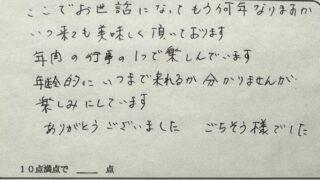 ここでお世話になってもう何年なりますか
いつ来ても美味しく頂いております
年内の行事の1つで楽しんでいます
年齢的にいつまで来れるか分かりませんが
楽しみにしています
ありがとうございました ごちそう様でした
10点満点で ____ 点